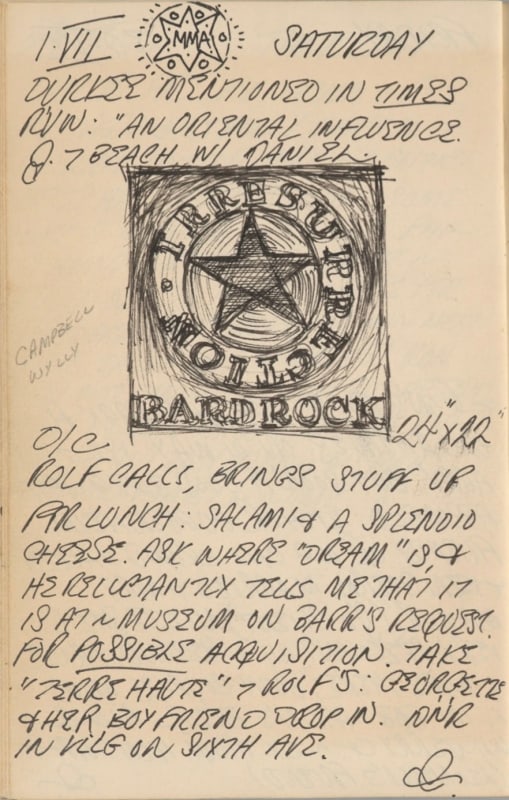 1·VII MMA SATURDAY
DURKEE MENTIONED IN TIMES
RVW: "AN ORIENTAL INFLUENCE.
→ BEACH W/ DANIEL.
· IRRESURRECTION
BARDROCK
CAMPBELL
WYLLY
O/C 24" x 22"
ROLF CALLS, BRINGS STUFF UP
FOR LUNCH: SALAMI & A SPLENDID
CHEESE. ASK WHERE "DREAM" IS, &
HE RELUCTANTLY TELLS ME THAT IT
IS AT ~ MUSEUM ON BARR'S REQUEST.
FOR POSSIBLE ACQUISITION. TAKE
"TERRE HAUTE" → ROLF'S: GEORGETTE
& HER BOYFRIEND DROP IN. DNR
IN VLLG ON SIXTH AVE.